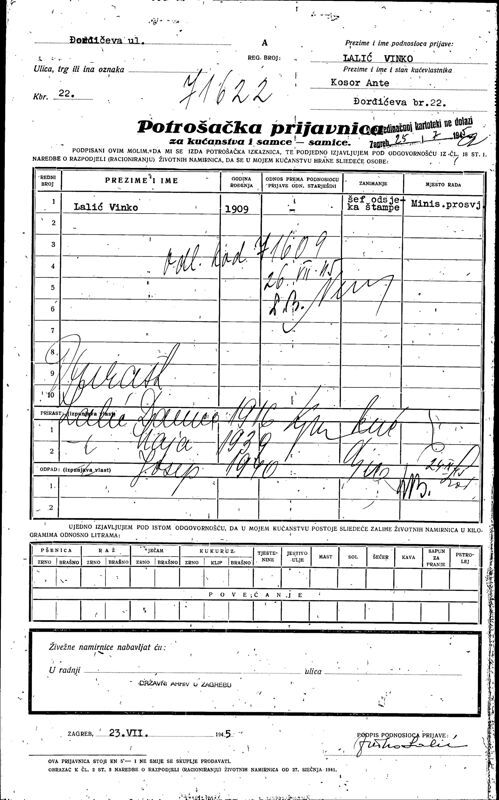 Đorđićeva ul.
A
Prezime i ime podnosioca prijave:
REG. BROJ:
LALIĆ VINKO
Ulica, trg ili ina oznaka
71622
Prezime i ime i stan kućevlastnika
Kosor Ante
Kbr. 22.
Đorđićeva br.22.
Potrošačka prijavnica
za kućanstva i samce – samice.
Zagreb,
PODPISANI OVIM MOLIM, DA MI SE IZDA POTROŠAČKA IZKAZNICA, TE PODJEDNO IZJAVLJUJEM POD ODGOVORNOŠĆU IZ ČL. 18 ST. 1.
NAREDBE O RAZPODJELI (RACIONIRANJU) ŽIVOTNIH NAMIRNICA, DA SE U MOJEM KUĆANSTVU HRANE SLIEDEĆE OSOBE:
REDNI BROJ
PREZIME I IME
GODINA ROĐENJA
ODNOS PREMA PODNOSIOCU PRIJAVE ODN. STARJEŠINI
ZANIMANJE
MJESTO RADA
1 Lalić Vinko 1909 – šef odsje-
ka štampe Minis.prosvj.
2
3
odl. kod 71609
4
26. VII. 45
5
6
7
8
9
10
PRIRAST: (izpunjava vlast)
Lalić 1916
1
Maja 1939
2
Josip 1940
ODPAD: (izpunjava vlast)
1
2
UJEDNO IZJAVLJUJEM POD ISTOM ODGOVORNOŠĆU, DA U MOJEM KUĆANSTVU POSTOJE SLIEDEĆE ZALIHE ŽIVOTNIH NAMIRNICA U KILO-
GRAMIMA ODNOSNO LITRAMA:
PŠENICA RAŽ JEČAM KUKURUZ TJESTE-NINE JESTIVO ULJE MAST SOL ŠEĆER KAVA SAPUN ZA PRANJE PETRO-LEJ
ZRNO BRAŠNO ZRNO BRAŠNO ZRNO BRAŠNO ZRNO KLIP BRAŠNO
POVEĆANJE
Živežne namirnice nabavljat ću:
U radnji ulica
DRŽAVNI ARHIV U ZAGREBU
ZAGREB, 23.VII. 1945
PODPIS PODNOSIOCA PRIJAVE:
OVA PRIJAVNICA STOJI KN 5'— I NE SMIJE SE SKUPLJE PRODAVATI.
OBRAZAC K ČL. 2 ST. 2 NAREDBE O RAZPODJELI (RACIONIRANJU) ŽIVOTNIH NAMIRNICA OD 27. SIEČNJA 1941.